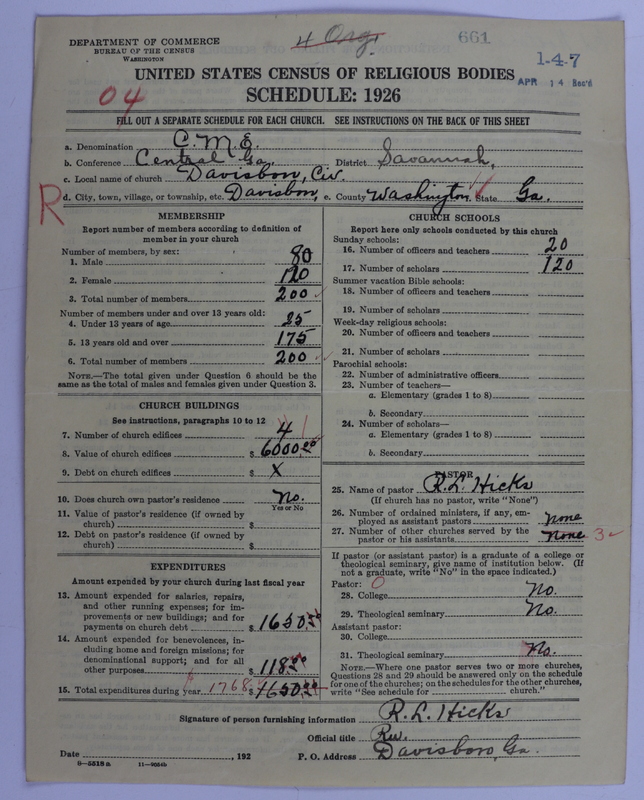 4 Org.
661
DEPARTMENT OF COMMERCE
BUREAU OF THE CENSUS
WASHINGTON
1-4-7
APR 14 Rec'd
UNITED STATES CENSUS OF RELIGIOUS BODIES
SCHEDULE: 1926
04
FILL OUT A SEPARATE SCHEDULE FOR EACH CHURCH. SEE INSTRUCTIONS ON THE BACK OF THIS SHEET
a. Denomination C. M. E.
b. Conference Central Ga. District Savannah,
c. Local name of church Davisbon, Civ.
R d. City, town, village, or township, etc. Davisbon, e. County Washington State Ga.
MEMBERSHIP
Report number of members according to definition of
member in your church
Number of members, by sex:
1. Male 80
2. Female 120
3. Total number of members 200
Number of members under and over 13 years old:
4. Under 13 years of age 25
5. 13 years old and over 175
6. Total number of members 200
NOTE.—The total given under Question 6 should be the
same as the total of males and females given under Question 3.
CHURCH BUILDINGS
See instructions, paragraphs 10 to 12
7. Number of church edifices 4 1
8. Value of church edifices $ 6000.00
9. Debt on church edifices $ X
10. Does church own pastor's residence No.
Yes or No
11. Value of pastor's residence (if owned by
church) $
12. Debt on pastor's residence (if owned by
church) $
EXPENDITURES
Amount expended by your church during last fiscal year
13. Amount expended for salaries, repairs,
and other running expenses; for im-
provements or new buildings; and for
payments on church debt $ 1650.50
14. Amount expended for benevolences, in-
cluding home and foreign missions; for
denominational support; and for all
other purposes $ 118.50
15. Total expenditures during year 1768 $ 1650.00
CHURCH SCHOOLS
Report here only schools conducted by this church
Sunday schools:
16. Number of officers and teachers 20
17. Number of scholars 120
Summer vacation Bible schools:
18. Number of officers and teachers
19. Number of scholars
Week-day religious schools:
20. Number of officers and teachers
21. Number of scholars
Parochial schools:
22. Number of administrative officers
23. Number of teachers—
a. Elementary (grades 1 to 8)
b. Secondary
24. Number of scholars—
a. Elementary (grades 1 to 8)
b. Secondary
PASTOR
25. Name of pastor R. L. Hicks
(If church has no pastor, write "None")
26. Number of ordained ministers, if any, em-
ployed as assistant pastors none
27. Number of other churches served by the
pastor or his assistants none 3
If pastor (or assistant pastor) is a graduate of a college or
theological seminary, give name of institution below. (If
not a graduate, write "No" in the space indicated.)
Pastor: 0
28. College No.
29. Theological seminary No.
Assistant pastor:
30. College
31. Theological seminary No.
NOTE.—Where one pastor serves two or more churches,
Questions 28 and 29 should be answered only on the schedule
for one of the churches; on the schedules for the other churches,
write "See schedule for church."
Signature of person furnishing information R. L. Hicks
Official title Rev.
Date , 192 P. O. Address Davisboro, Ga.
8—5518a 11—9054b